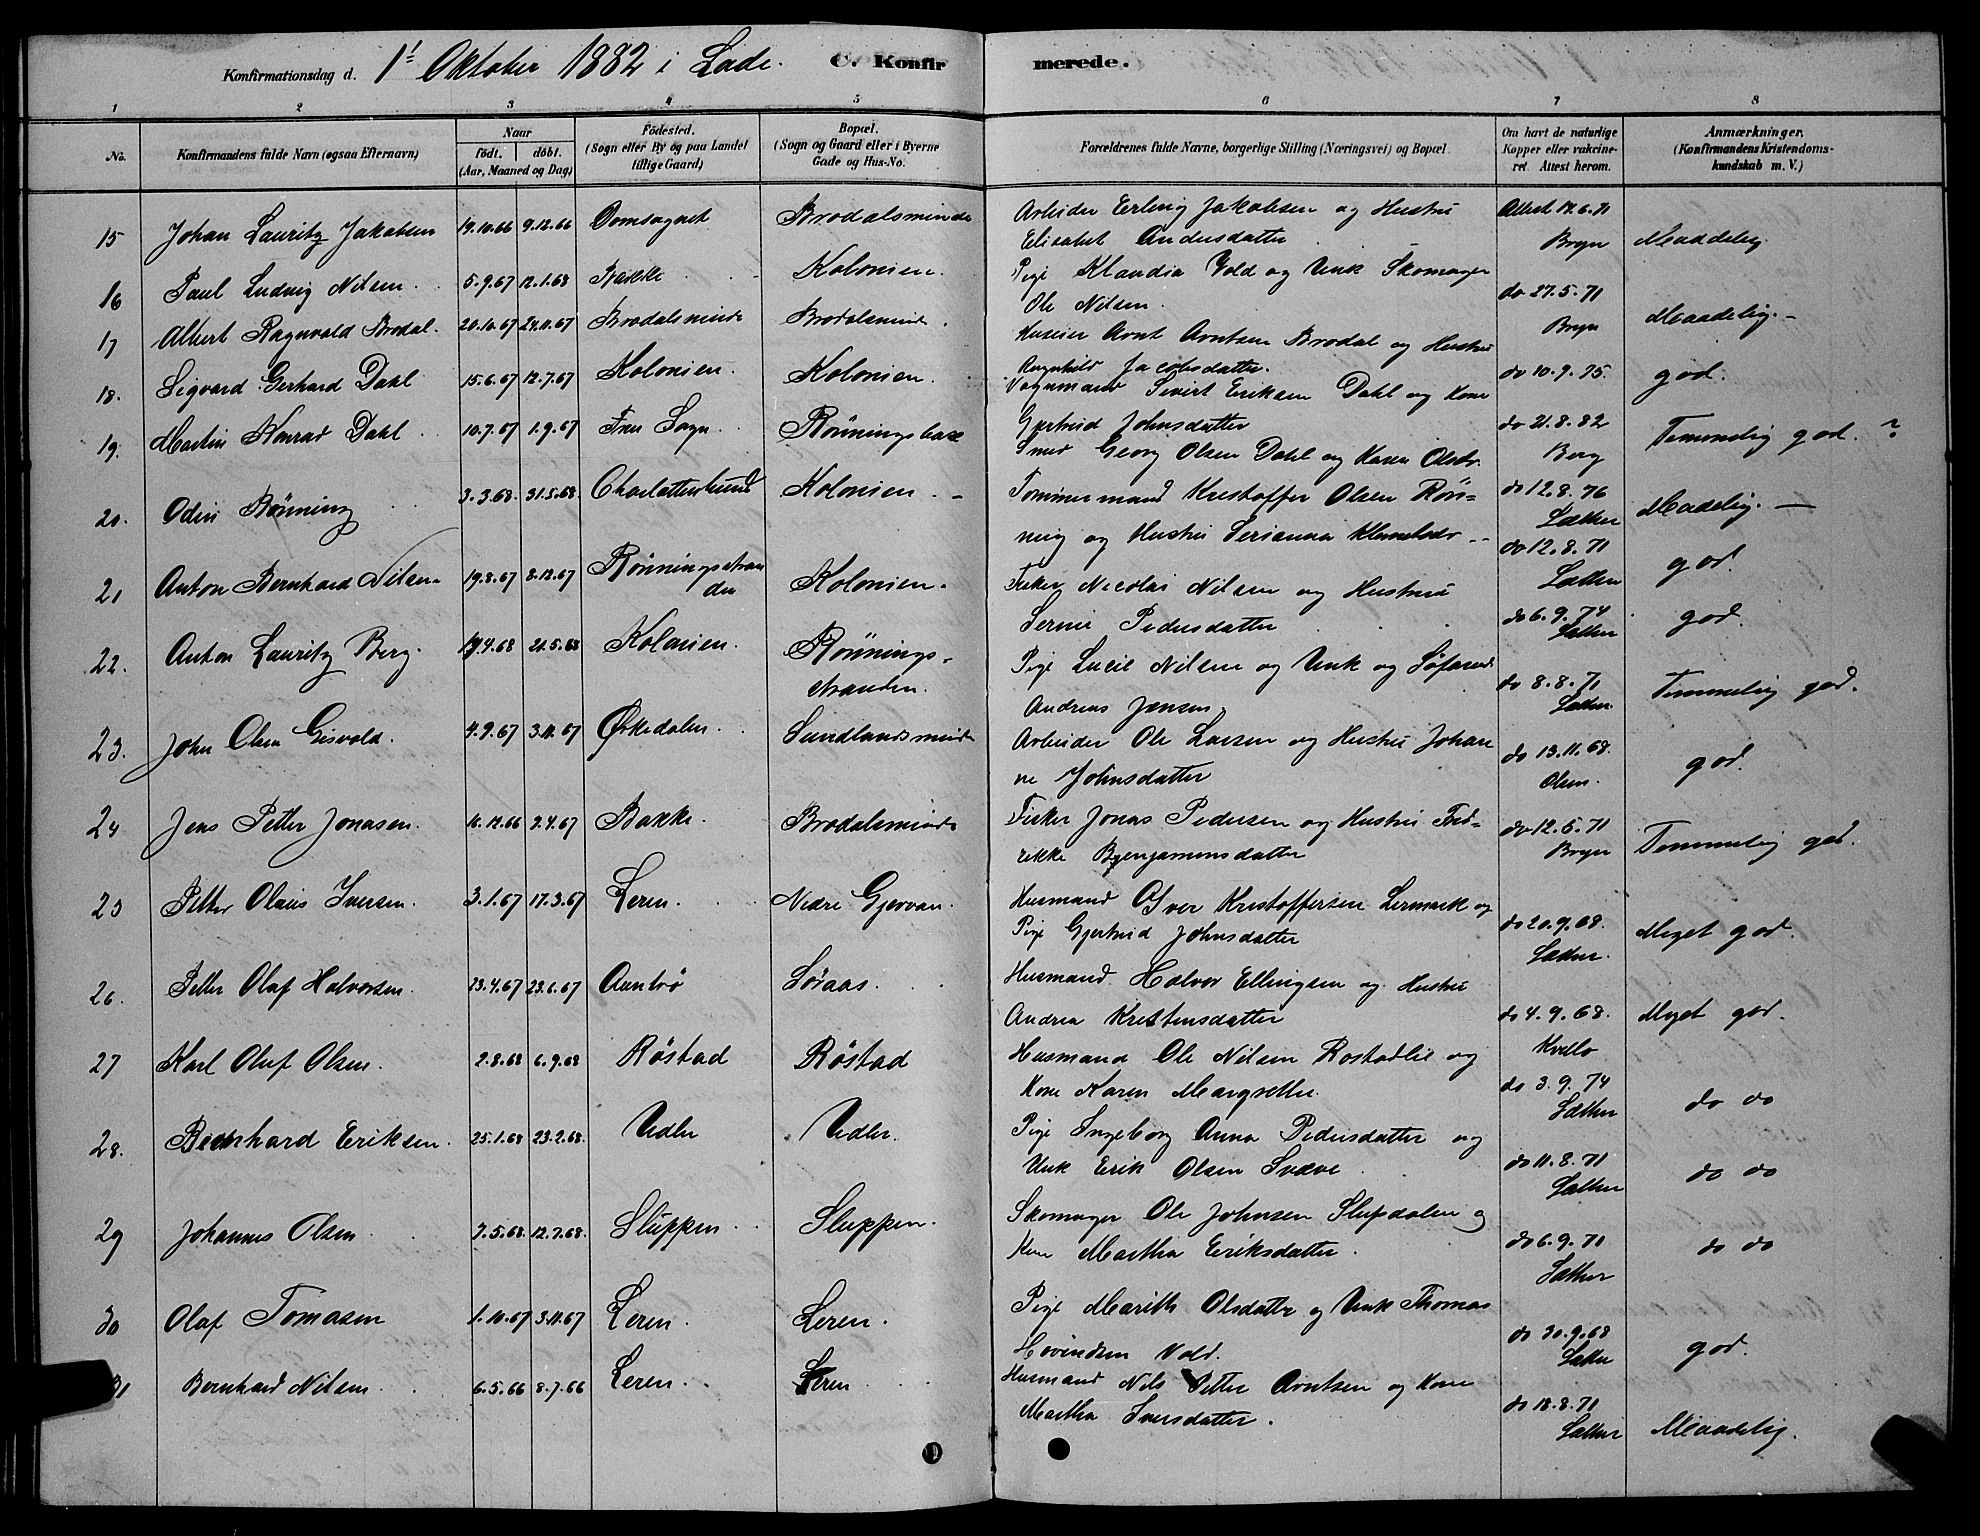 Konfirmationsdag d. 1ste Oktober 1882 i Lade. C. Konfirmerede.
1 2 3 4 5 6 7 8
No. Konfirmandens fulde Navn (ogsaa Efternavn) Naar født. døbt. (Aar, Maaned og Dag) Fødested. (Sogn eller By og paa Landet tillige Gaard) Bopæl. (Sogn og Gaard eller i Byerne Gade og Hus-No. Forældrenes fulde Navne, borgerlige Stilling (Næringsvei) og Bopæl. Om havt de naturlige Kopper eller vakcineret. Attest herom. Anmærkninger. (Konfirmandens Kristendomskundskab m. V.)
15 Johan Lauritz Jakobsen 19.10.66 9.12.66 Domsognet Brodalsminde Arbeider Erling Jakobsen og Hustru
Elisabet Andersdatter Attest 12.6.71 Bryn Maadelig
16 Paul Ludvig Nilsen 5.9.67 12.1.68 Bakke Kolonien. Pige Klaudia Vold og Unk Skomager
Ole Nilsen. do 27.5.71 Bryn Maadelig.
17 Albert Ragnvald Brodal. 20.10.67 24.11.67 Brodalsminde Brodalsminde Huseier Arnt Arntsen Brodal og Hustru
Ragnhild Jacobsdatter. do 10.9.75. god.
18. Sigvard Gerhard Dahl 15.6.67 12.7.67 Kolonien. Kolonien. Vognmand Sivert Eriksen Dahl og Kone
Gjertrud Johnsdatter do 21.8.82 Berg Temmelig god. ?
19. Martin Konrad Dahl 10.7.67 1.9.67 Frue Sogn Rønningsbak Smed Georg Olsen Dahl og Karen Olsdr.
20. Odin Rønning 3.3.68. 31.5.68. Charlottenlund Kolonien. Tømmermand Kristoffer Olsen Røn-
ning og Hustru Serianna Klemetsdr do 12.8.76 Sæther Madelig.
21 Anton Bernhard Nilsen 19.8.67 8.12.67 Rønningsstran
den Kolonien. Fisker Nicolai Nilsen og Hustru
Serine Pedersdatter do 12.8.71 Sæther god.
22. Anton Lauritz Berg. 19.4.68 21.5.68 Kolonien. Rønnings-
stranden. Pige Lucie Nilsen og Unk og Søfarend.
Andreas Jensen. do 6.9.74 Sæther god.
23. John Olsen Gisvold. 4.9.67 3.11.67 Ørkedalen. Sundlandsminde Arbeider Ole Larsen og Hustru Johan
ne Johnsdatter do 8.8.71 Sæther. Temmelig god.
do 13.11.68. Olsen. god.
24 Jens Petter Jonasen. 16.12.66 2.4.67 Bakke. Brodalsminde Fisker Jonas Pedersen og Hustru Fred-
rikke Benjaminsdatter do 12.5.71 Bryn Temmelig god.
25 Petter Olaus Iversen. 3.1.67 17.3.67 Leren. Nedre Gjervan. Husmand Iver Kristoffersen Lermark og
Pige Gjertrud Johnsdatter do 20.9.68. Sæther. Meget god.
26. Petter Olaf Halvorsen. 23.4.67 23.6.67 Auntrø Søraas. Husmand Halvor Ellingsen og Hustru
Andrea Kristensdatter do 4.9.68. Kvello Meget god.
27 Karl Oluf Olsen. 2.8.68 6.9.68 Røstad Røstad Husmand Ole Nilsen Rostadlie og
Kone Karen Margrethe. do 3.9.74 Sæther do do
28. Bernhard Eriksen. 25.1.68 23.2.68. Udler Udler. Pige Ingeborg Anna Pedersdatter og
Unk Erik Olsen Svæve do 11.8.71 Sæther do do
29 Johannes Olsen 7.5.68. 12.7.68. Sluppen Sluppen. Skomager Ole Johnsen Slupdalen og
Kone Martha Eriksdatter. do 6.9.71 Sæther do do
30 Olaf Tomasen 1.10.67 3.11.67 Leren. Leren. Pige Marith Olsdatter og Unk Thomas
Hovindsen Vold. do 30.9.68 Sæther god.
31 Bernhard Nilsen 6.5.66 8.7.66 Leren. Leren Husmand Nils Petter Arntsen og Kone
Martha Iversdatter. do 18.8.71 Sæther Maadelig.